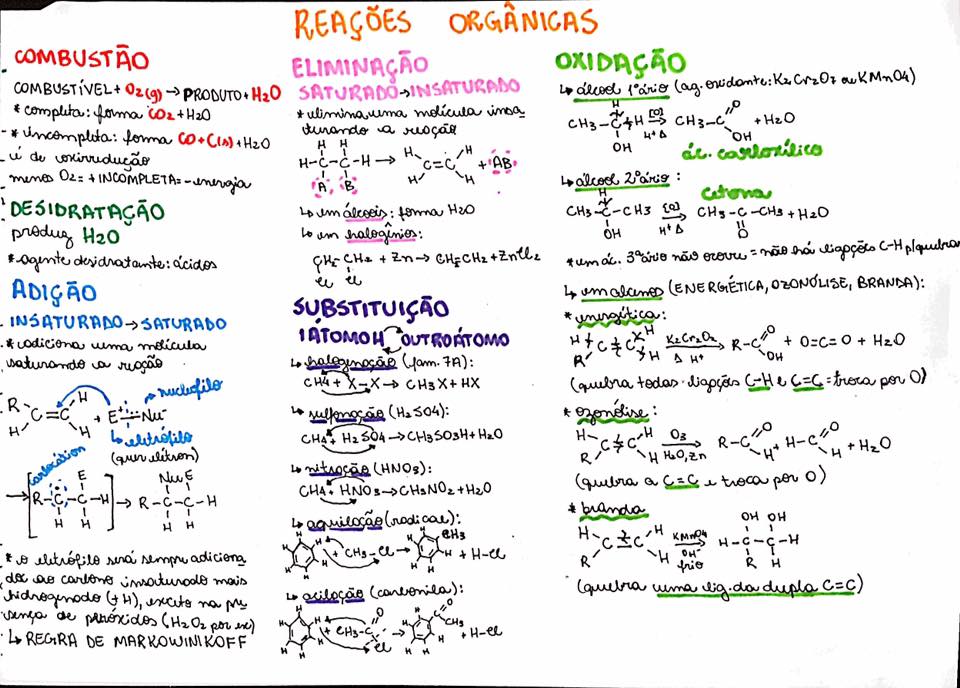 REAÇÕES ORGÂNICAS
COMBUSTÃO
COMBUSTÍVEL + O2(g) → PRODUTO + H2O
* completa: forma CO2 + H2O
* incompleta: forma CO + C(s) + H2O
é de oxirredução
menos O2 = + INCOMPLETA = - energia
DESIDRATAÇÃO
produz H2O
* agente desidratante: ácidos
ADIÇÃO
INSATURADO → SATURADO
* adiciona uma molécula
saturando a reação
R H
C=C + E Nu
H H
nucleófilo
↳ eletrófilo
(quer elétron)
carbocátion
E Nu E
→ [R-C-C-H] → R-C-C-H
H H H H
* o eletrófilo será sempre adiciona
do ao carbono insaturado mais
hidrogenado (+H), exceto na pre
sença de peróxidos (H2O2 por ex)
↳ REGRA DE MARKOWINIKOFF
ELIMINAÇÃO
SATURADO → INSATURADO
* elimina uma molécula insa_
turando a reação
H H
H-C-C-H → H H C=C H H + AB
A B
↳ em álcoois: forma H2O
↳ em halogênios:
CH2-CH2 + Zn → CH2=CH2 + ZnCl2
Cl Cl
SUBSTITUIÇÃO
1 ÁTOMO H OUTRO ÁTOMO
↳ halogenação (fam. 7A):
CH4 + X-X → CH3X + HX
↳ sulfonação (H2SO4):
CH4 + H2SO4 → CH3SO3H + H2O
↳ nitração (HNO3):
CH4 + HNO3 → CH3NO2 + H2O
↳ aquilação (radical):
H H H H H + CH3-Cl → CH3 H H H H + H-Cl
↳ acilação (carbonila):
H H H H H + CH3-C O Cl → C O CH3 H H H H + H-Cl
OXIDAÇÃO
↳ álcool 1°ário (ag. oxidante: K2Cr2O7 ou KMnO4)
H
CH3-C-H [O] H+ Δ → CH3-C O OH + H2O
OH
ác. carboxílico
↳ álcool 2°ário:
cetona
H
CH3-C-CH3 [O] H+ Δ → CH3-C-CH3 + H2O
OH O
* em ác. 3°ário não ocorre = não há ligações C-H p/ quebrar
↳ em alcenos (ENERGÉTICA, OZONÓLISE, BRANDA):
* energética:
H R C=C H H K2Cr2O7 Δ H+ → R-C O OH + O=C=O + H2O
(quebra todas ligações C-H e C=C = troca por O)
* ozonólise:
H R C=C H H O3 H2O, Zn → R-C O H + H-C O H + H2O
(quebra a C=C e troca por O)
* branda
OH OH
H R C=C H H KMnO4 OH- frio → H-C-C-H
R H
(quebra uma lig. da dupla C=C)